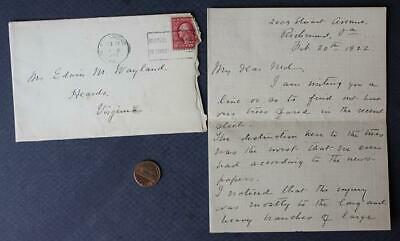 Mr. Edwin M. Wayland,
Heards,
Virginia
2009 Stuart Avenue,
Richmond, Va
Feb. 20th 1922
My Dear Ned,
I am writing you a
line or so to find out how
our trees fared in the recent
sleet.
The destruction here to the trees
was the worst that we ever
had according to the news-
papers.
I noticed that the injury
was mostly to the long and
heavy branches of large